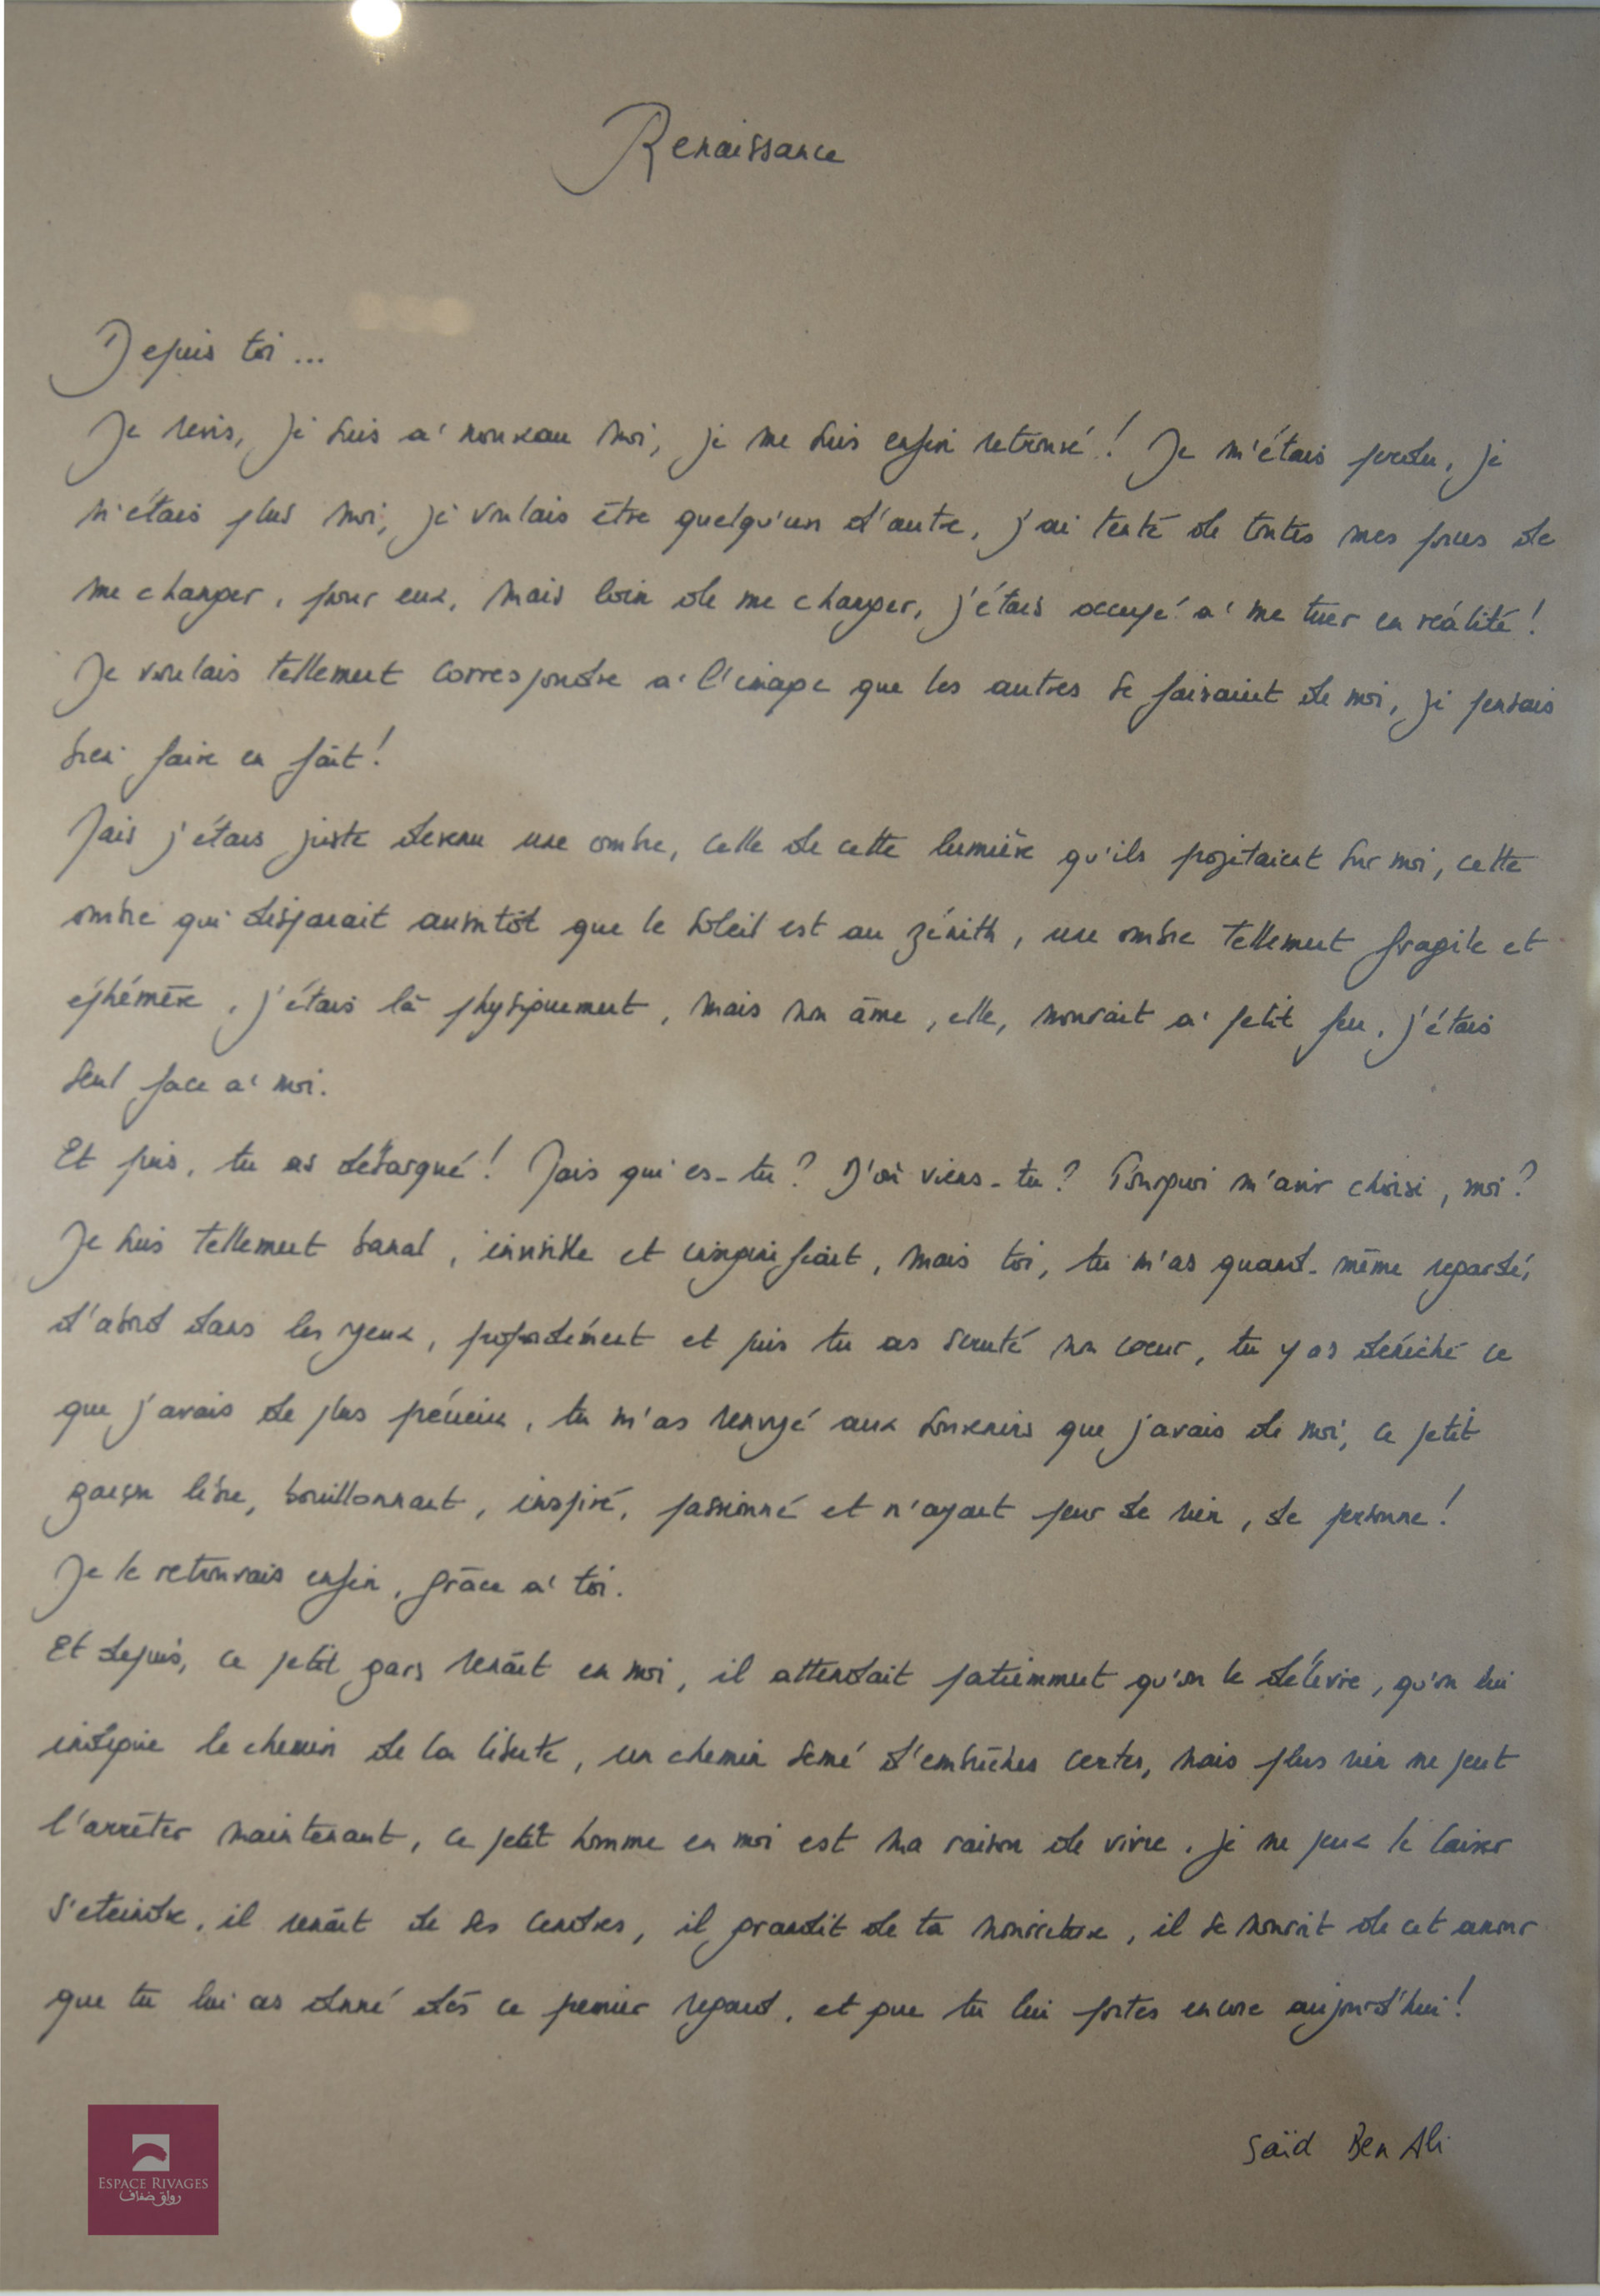 Renaissance
Depuis toi ...
Je revis, je suis à nouveau moi, je me suis enfin retrouvé ! Je m'étais perdu, je
n'étais plus moi, je voulais être quelqu'un d'autre, j'ai tenté de toutes mes forces de
me changer, pour eux, mais loin de me changer, j'étais occupé à me tuer en réalité !
Je voulais tellement correspondre à l'image que les autres se faisaient de moi, je pensais
bien faire en fait !
Mais j'étais juste devenu une ombre, celle de cette lumière qu'ils projetaient sur moi, cette
ombre qui disparait aussitôt que le soleil est au zénith, une ombre tellement fragile et
éphémère, j'étais là physiquement, mais mon âme, elle, mourait à petit feu, j'étais
seul face à moi.
Et puis, tu as débarqué ! Mais qui es-tu ? D'où viens-tu ? Pourquoi m'avoir choisi, moi ?
Je suis tellement banal, invisible et insignifiant, mais toi, tu m'as quand-même regardé,
d'abord dans les yeux, profondément et puis tu as scruté mon coeur, tu y as déniché ce
que j'avais de plus précieux, tu m'as renvoyé aux souvenirs que j'avais de moi, ce petit
garçon libre, bouillonnant, inspiré, passionné et n'ayant peur de rien, de personne !
Je le retrouvais enfin, grâce à toi.
Et depuis, ce petit gars renaît en moi, il attendait patiemment qu'on le délivre, qu'on lui
indique le chemin de la liberté, un chemin semé d'embûches certes, mais plus rien ne peut
l'arrêter maintenant, ce petit homme en moi est ma raison de vivre, je ne peux le laisser
s'eteindre, il renaît de ses cendres, il grandit de ta nourriture, il se nourrit de cet amour
que tu lui as donné dès ce premier regard, et que tu lui portes encore aujourd'hui !
Saïd Ben Ali
ESPACE RIVAGES
رواق ضفاف